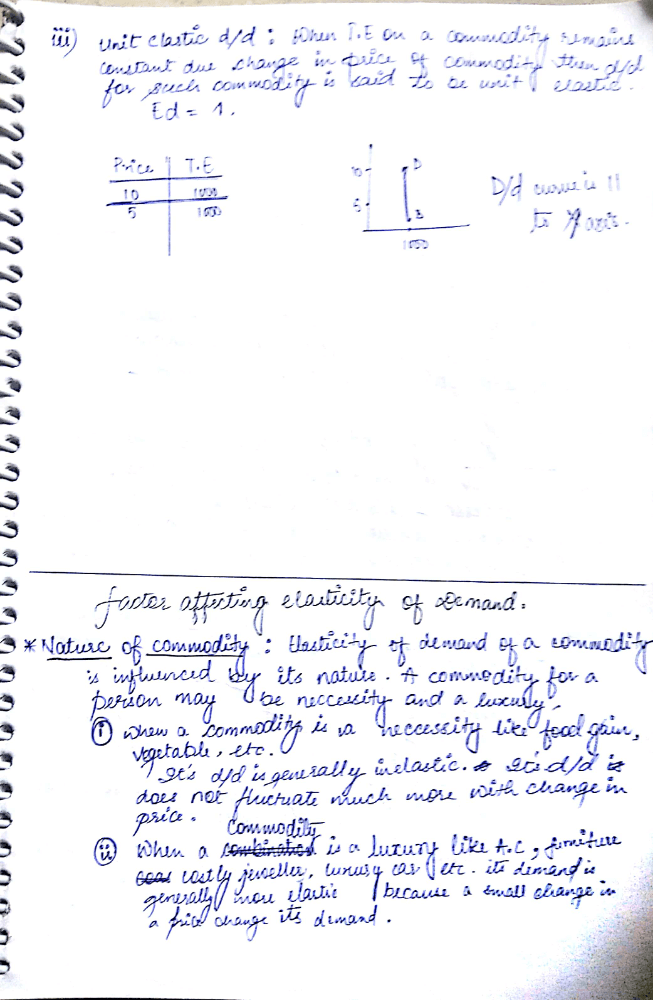 iii) Unit elastic d/d : When T.E on a commodity remains
constant due change in price of commodity then d/d
for such commodity is said to be unit elastic.
Ed = 1.
Price T.E
10 1000
5 1000
10 D
5
1000
D/d curve is ||
to Y axis.
factor affecting elasticity of Demand.
* Nature of commodity : Elasticity of demand of a commodity
is influenced by its nature. A commodity for a
person may be neccessity and a luxury.
(i) when a commodity is a neccessity like food gain,
vegetable, etc.
It's d/d is generally inelastic. It's d/d is
does not fluctuate much more with change in
price.
Commodity
(ii) When a combination is a luxury like A.C, furniture
costly jeweller, luxury car etc. its demand is
generally more elastic because a small change in
a price change its demand.